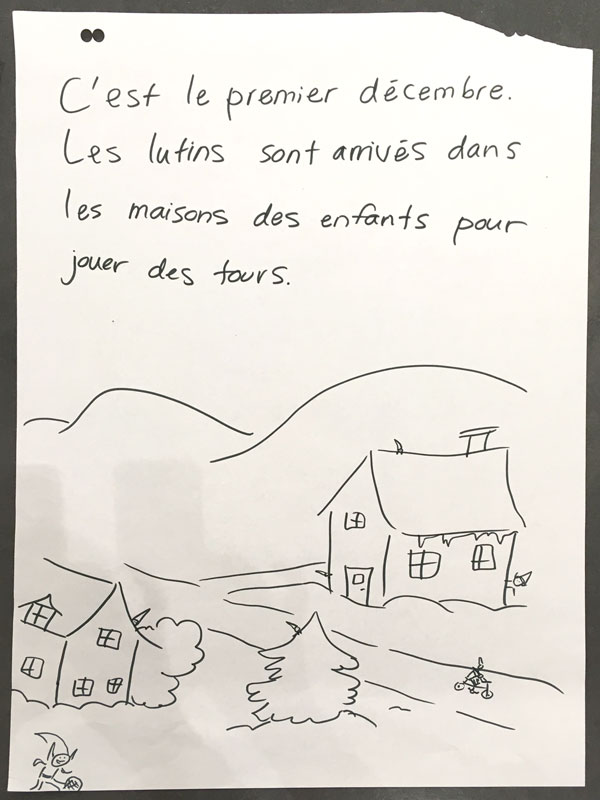 C'est le premier décembre.
Les lutins sont arrivés dans
les maisons des enfants pour
jouer des tours.